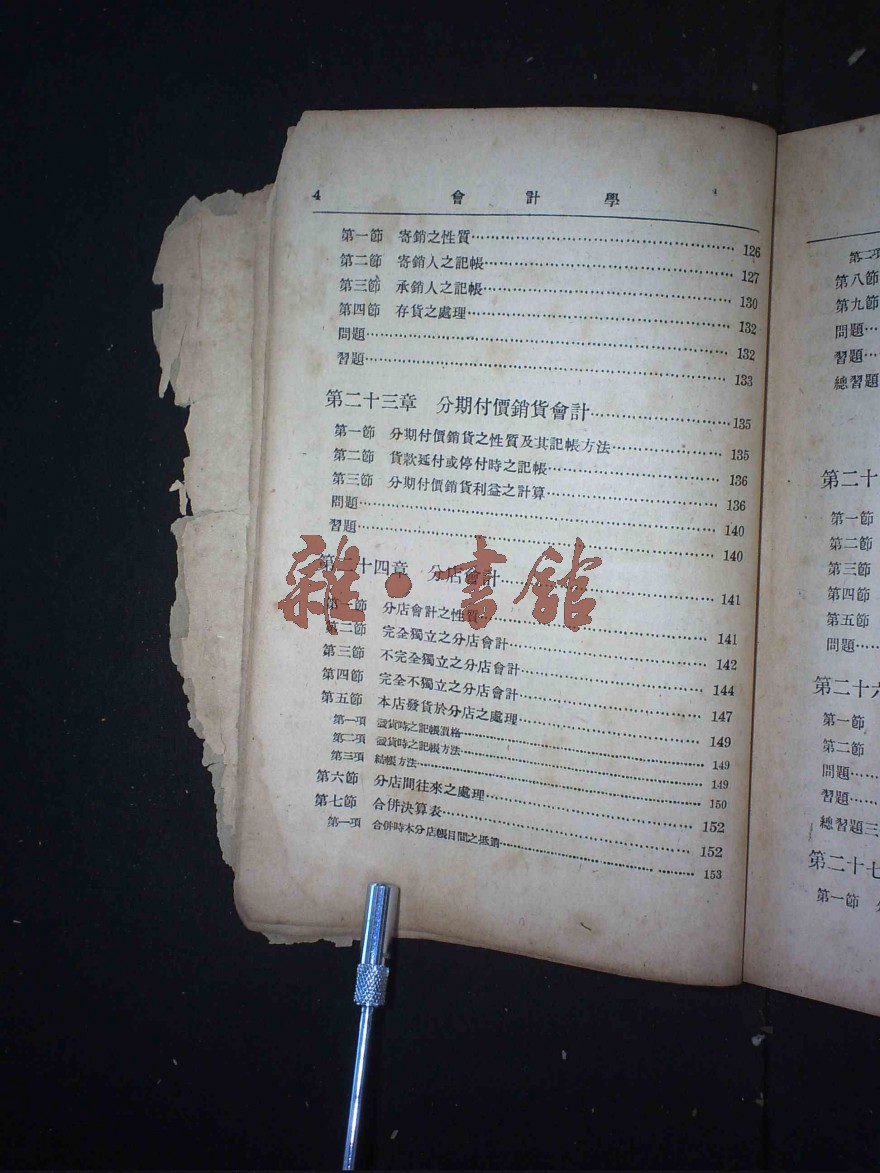 4 會計學
第一節 寄銷之性質 126
第二節 寄銷人之記帳 127
第三節 承銷人之記帳 130
第四節 存貨之處理 132
問題 132
習題 133
第二十三章 分期付價銷貨會計 135
第一節 分期付價銷貨之性質及其記帳方法 135
第二節 貨款延付或停付時之記帳 136
第三節 分期付價銷貨利益之計算 136
問題 140
習題 140
第二十四章 分店會計 141
第一節 分店會計之性質 141
第二節 完全獨立之分店會計 142
第三節 不完全獨立之分店會計 144
第四節 完全不獨立之分店會計 147
第五節 本店發貨於分店之處理 149
第一項 發貨時之記帳價格 149
第二項 發貨時之記帳方法 149
第三項 結帳方法 150
第六節 分店間往來之處理 152
第七節 合併決算表 152
第一項 合併時本分店帳目間之抵銷 153
雜·書館
第二項
第八節
第九節
問題
習題
總習題
第二十
第一節
第二節
第三節
第四節
第五節
問題
第二十六
第一節
第二節
問題
習題
總習題三
第二十七
第一節